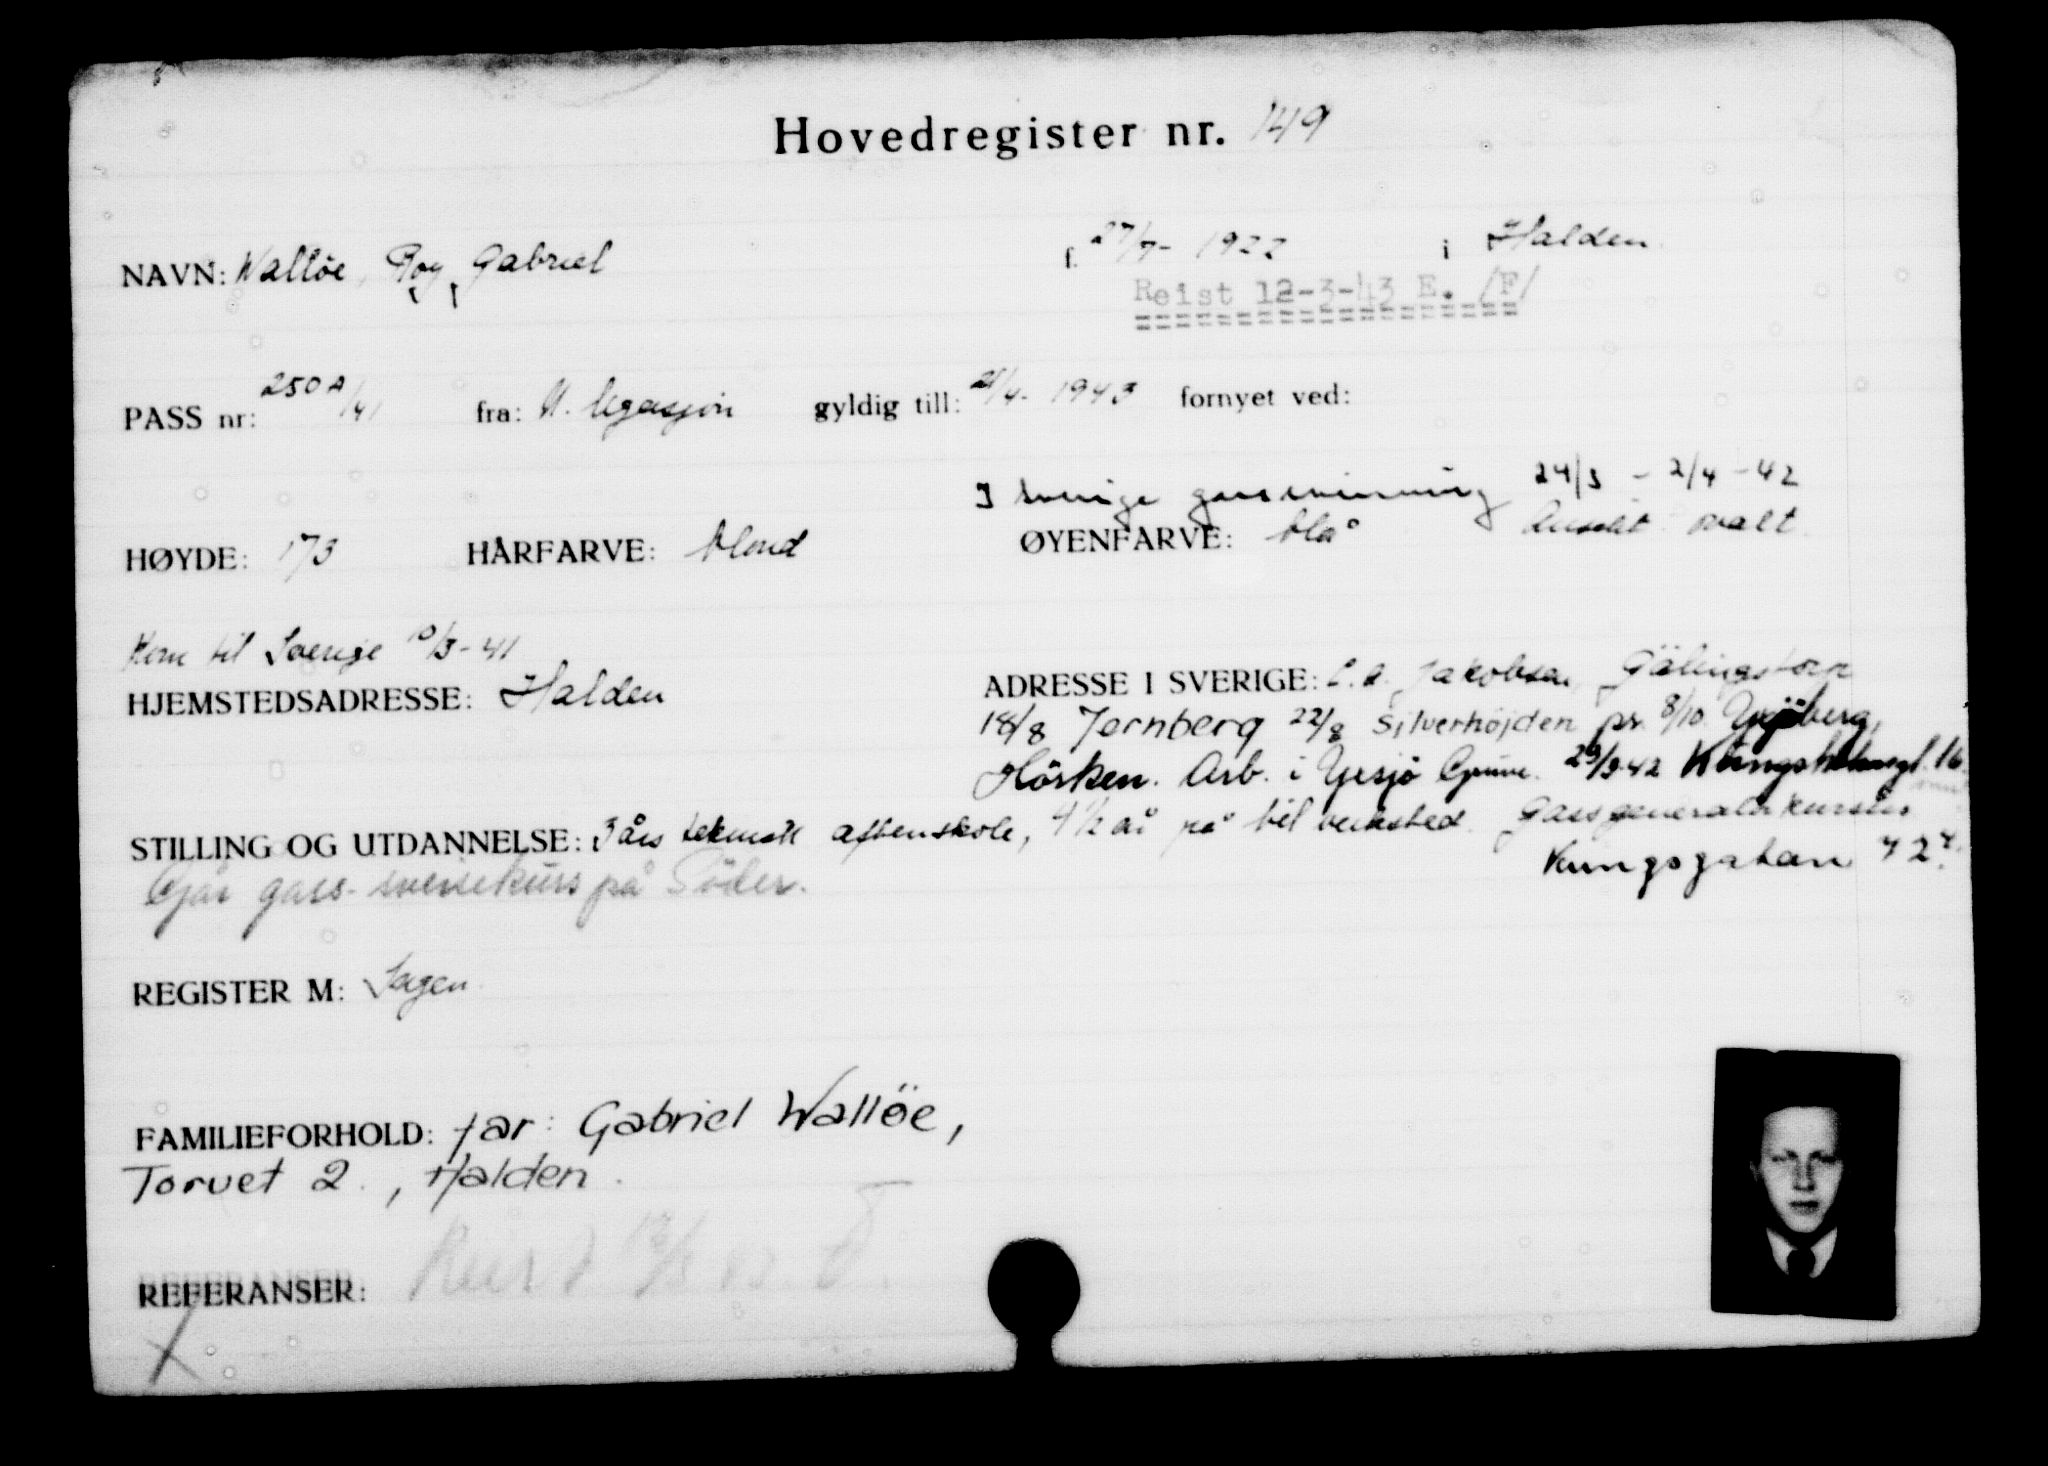 Hovedregister nr. 149
NAVN: Walløe, Roy, Gabriel f. 27/7- 1922 i Halden
Reist 12-3-43 E. /F/
PASS nr: 250A/41 fra: N. legasjon gyldig till: 21/4- 1943 fornyet ved:
I Sverige 24/3 - 2/4 - 42
HØYDE: 173 HÅRFARVE: blond ØYENFARVE: blå Ansikt ovalt
Kom til Sverige 10/3-41
HJEMSTEDSADRESSE: Halden ADRESSE I SVERIGE: C. A. Jakobsen, Gälingstorp
18/8 Jernberg 22/8 Silverhöjden pr. 8/10 Yxsjöberg,
Hörken. Arb. i Yxsjö Gruve. 29/9-42 16
STILLING OG UTDANNELSE: 3 års teknisk aftenskole, 4 1/2 år på bil verksted. Gassgeneratorkursus
Går gass-sveisekurs på Söder. Kungsgatan 72
REGISTER M: Sagen
FAMILIEFORHOLD: far: Gabriel Wallöe,
Torvet 2., Halden.
REFERANSER: Reist 12/3 43